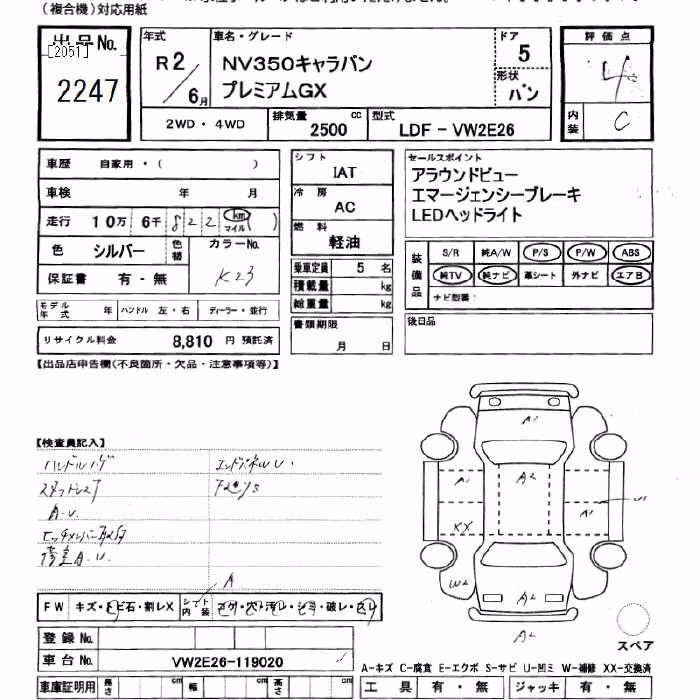 (複合機)対応用紙
出品No.
[2051]
2247
年式
R2/6月
車名・グレード
NV350キャラバン
プレミアムGX
ドア
5
形状
バン
評価点
4
内装
C
2WD・4WD
排気量 2500 cc
型式 LDF-VW2E26
車歴 自家用・( )
車検 年 月
走行 10万 6千 822 km マイル ( )
色 シルバー 色替 カラーNo. K23
保証書 有・無
モデル年式 年 ハンドル 左・右 ディーラー・並行
リサイクル料金 8,810 円 預託済
シフト
IAT
冷房
AC
燃料
軽油
乗車定員 5 名
積載量 kg
総重量 kg
書類期限
月 日
セールスポイント
アラウンドビュー
エマージェンシーブレーキ
LEDヘッドライト
装備品
S/R 純A/W P/S P/W ABS
純TV 純ナビ 革シート 外ナビ エアB
ナビ型番:
後日品
【出品店申告欄(不良個所・欠品・注意事項等)】
【検査員記入】
ハンドルハゲ
エンドパネルU.
A.U.
A1
A2
A1
A1
U1
XX
W2
A2
A2
A
FW キズ・トビ石・割レX
シート内装 コゲ・穴・汚レ・シミ・破レ・スレ
登録No.
車台No. VW2E26-119020
車庫証明用 長さ cm 幅 cm 高さ cm
スペア
A-キズ C-腐食 E-エクボ S-サビ U-凹ミ W-補修 XX-交換済
工具 有・無 ジャッキ 有・無